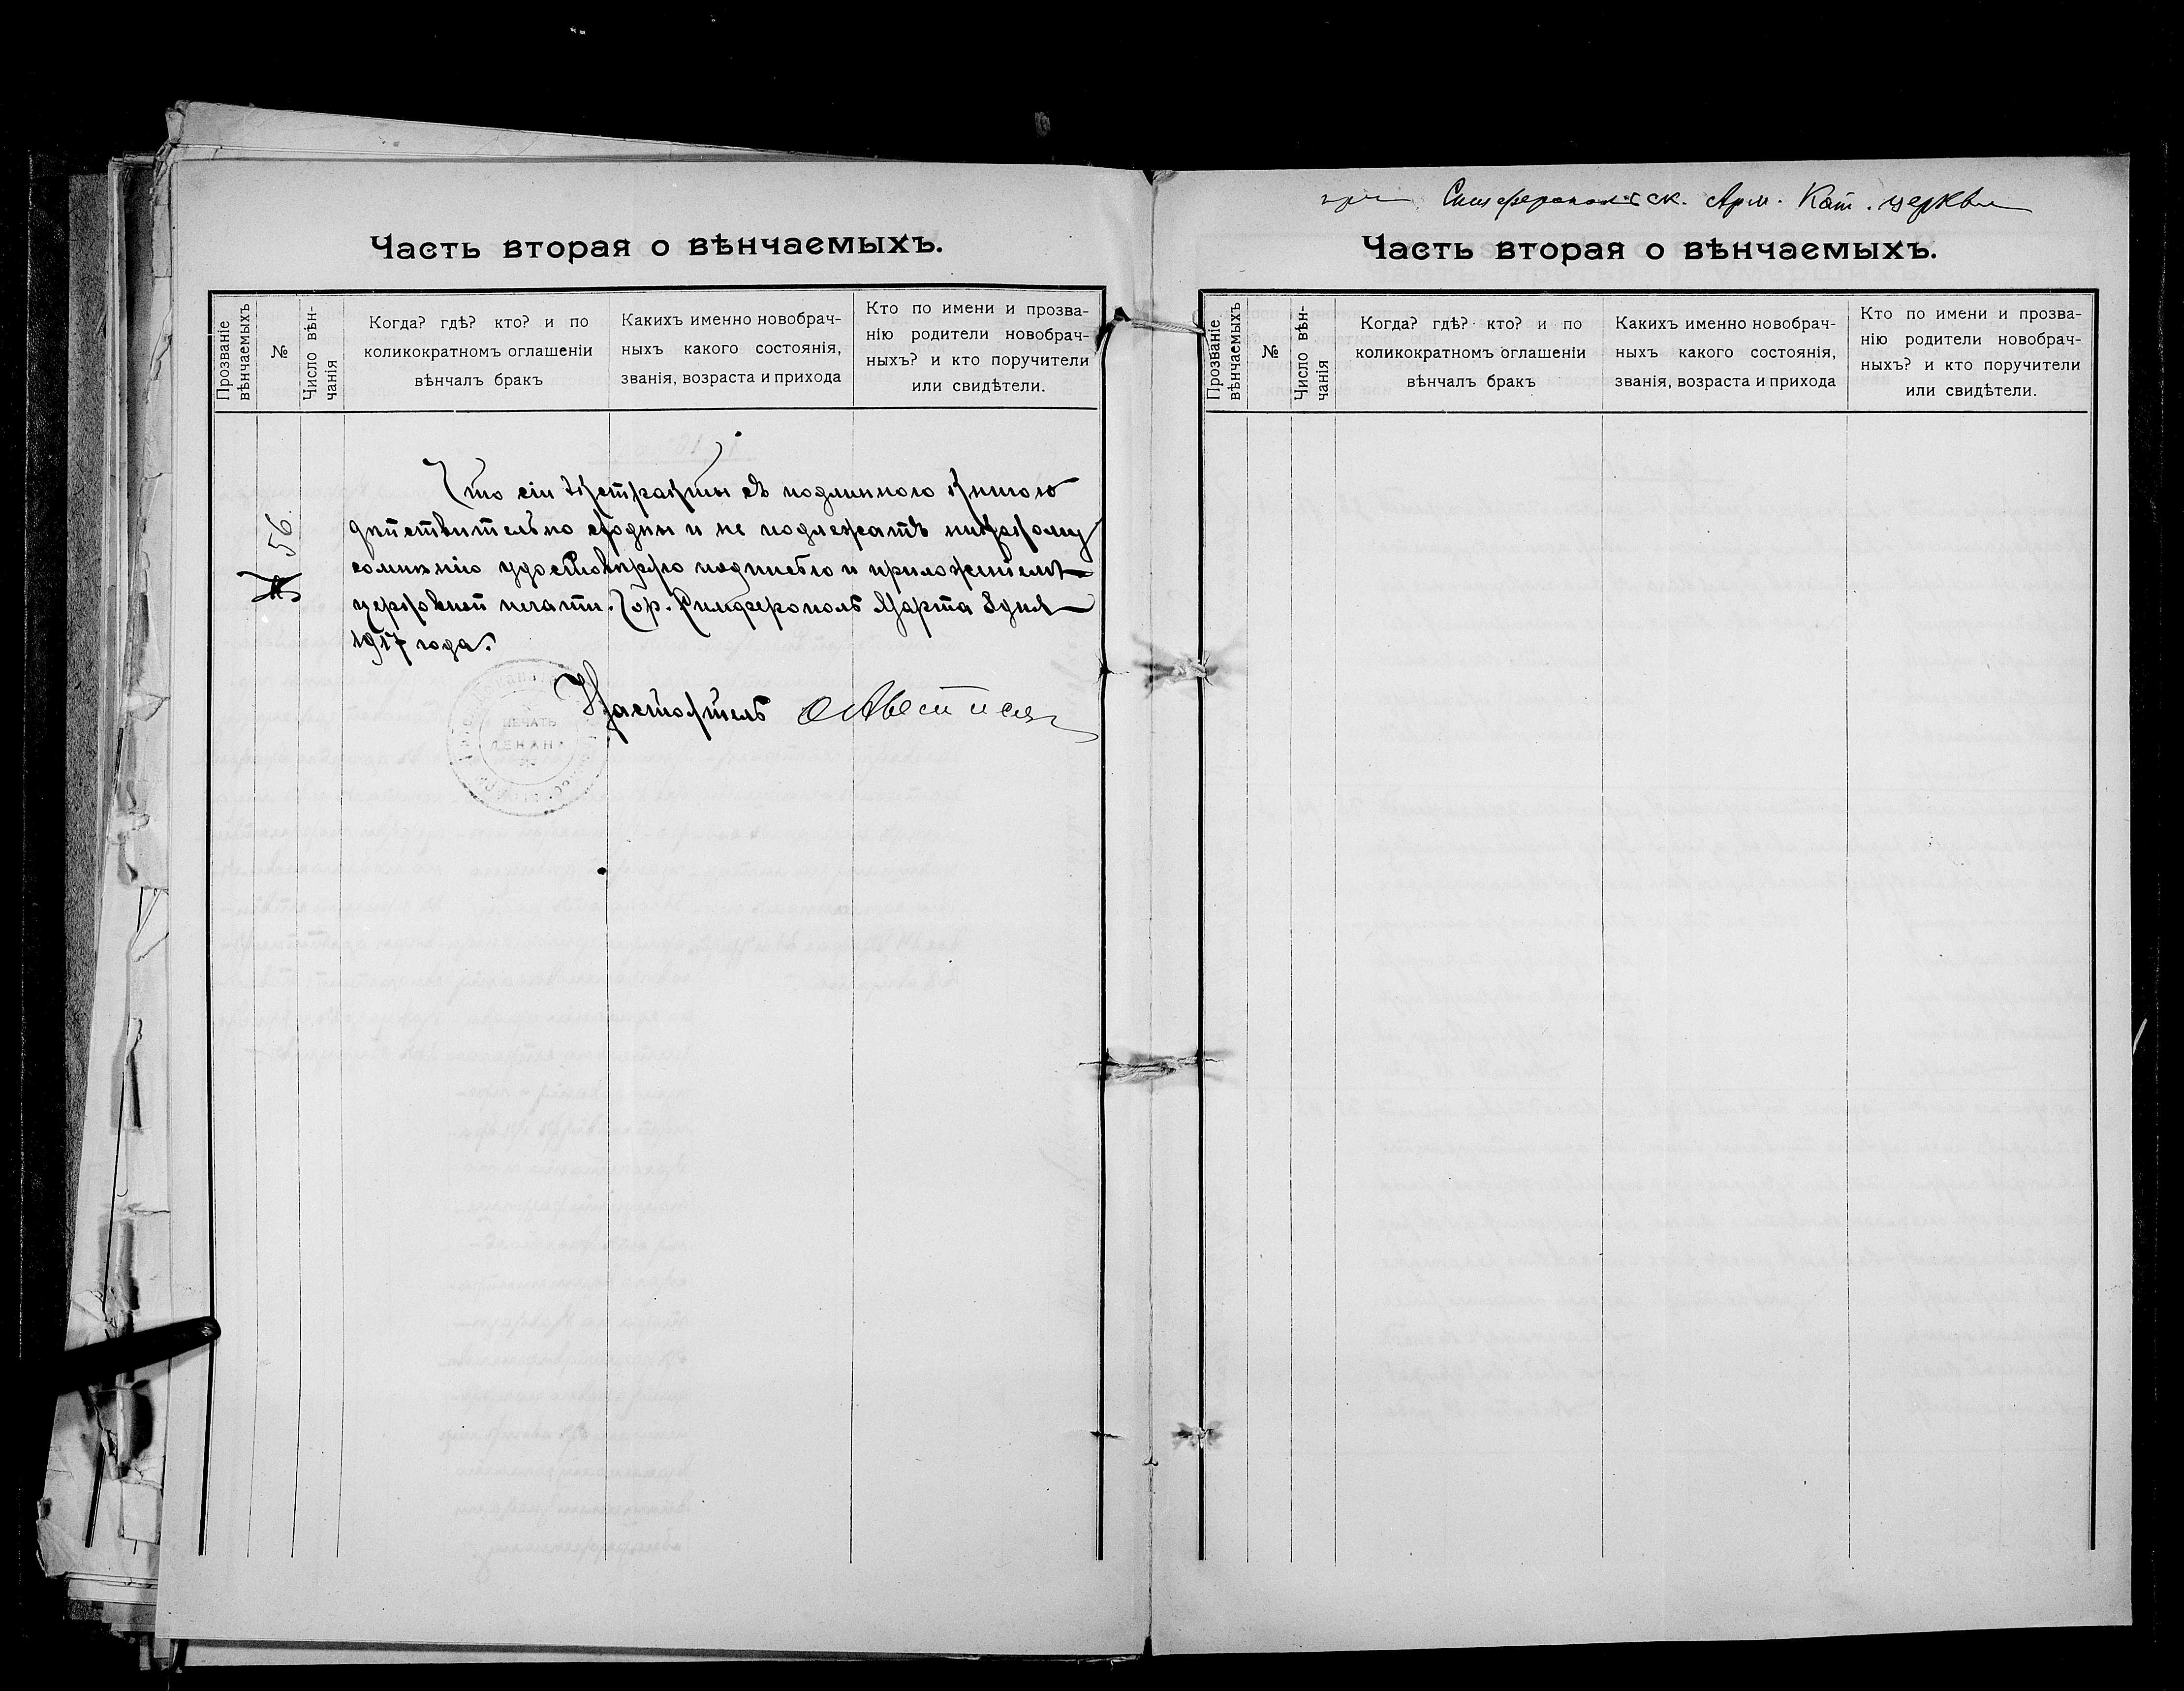 Часть вторая о вѣнчаемыхъ.
Прозваніе вѣнчаемыхъ
№
Число вѣн-
чанія
Когда? гдѣ? кто? и по
коликократномъ оглашеніи
вѣнчалъ бракъ
Какихъ именно новобрач-
ныхъ какого состоянія,
званія, возраста и прихода
Кто по имени и прозва-
нію родители новобрач-
ныхъ? и кто поручители
или свидѣтели.
№ 56
Что сіи Экстракты съ подлинною книгою
дѣйствительно сходны и не подлежатъ никакому
сомнѣнію удостовѣряю подписью и приложеніемъ
церковной печати. Гор. Симферополь Марта 8 дня
1917 года.
Настоятель
ПЕЧАТЬ
ДЕКАНА
при Симферопольск. Арм. Кат. церкви
Часть вторая о вѣнчаемыхъ.
Прозваніе вѣнчаемыхъ
№
Число вѣн-
чанія
Когда? гдѣ? кто? и по
коликократномъ оглашеніи
вѣнчалъ бракъ
Какихъ именно новобрач-
ныхъ какого состоянія,
званія, возраста и прихода
Кто по имени и прозва-
нію родители новобрач-
ныхъ? и кто поручители
или свидѣтели.